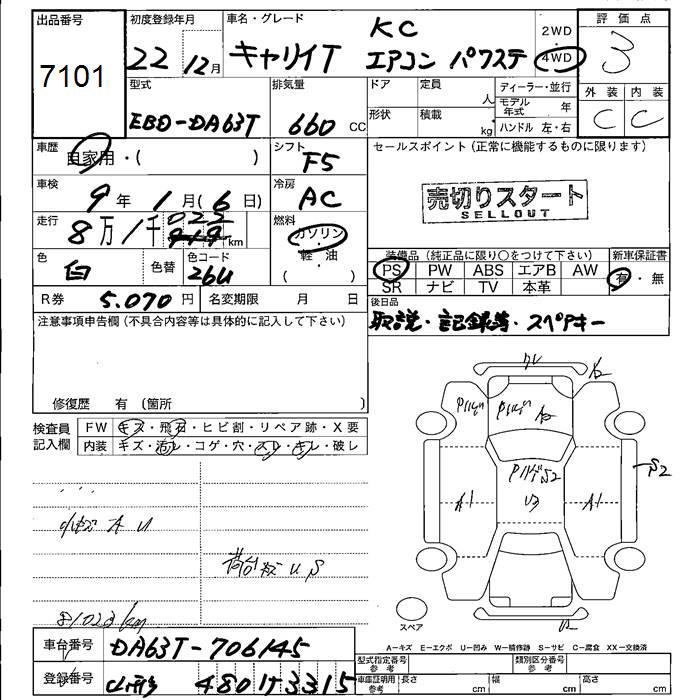 出品番号
7101
初度登録年月
22 12月
車名・グレード
キャリイT
KC
エアコン パワステ
2WD
4WD
評価点
3
外装 内装
C C
型式
EBD-DA63T
排気量
660 cc
ドア 定員 人
形状 積載 kg
ディーラー・並行
モデル年式 年
ハンドル 左・右
車歴
自家用・( )
シフト
F5
セールスポイント (正常に機能するものに限ります)
売切りスタート
SELLOUT
車検
9年 1月 (6日)
冷房
AC
走行
8万1千 022
919 km
燃料
ガソリン
軽油
( )
色
白
色替
色コード
26U
装備品 (純正品に限り○をつけて下さい)
PS PW ABS エアB AW
SR ナビ TV 本革
新車保証書
有・無
R券 5.070円
名変期限 月 日
後日品
取説・記録簿・スペアキー
注意事項申告欄 (不具合内容等は具体的に記入して下さい)
修復歴 有 〔箇所 〕
検査員
記入欄
FW キズ・飛石・ヒビ割・リペア跡・X要
内装 キズ・汚レ・コゲ・穴・スレ・キレ・破レ
A U
荷台 U S
81022 km
A2
A2
S2
S2
A1
A1
U3
スペア
A-キズ E-エクボ U-凹み W-補修跡 S-サビ C-腐食 XX-交換済
車台番号
DA63T-706145
登録番号
480 13315
型式指定番号
参考
類別区分番号
参考
車庫証明用
参考
長さ cm 幅 cm 高さ cm